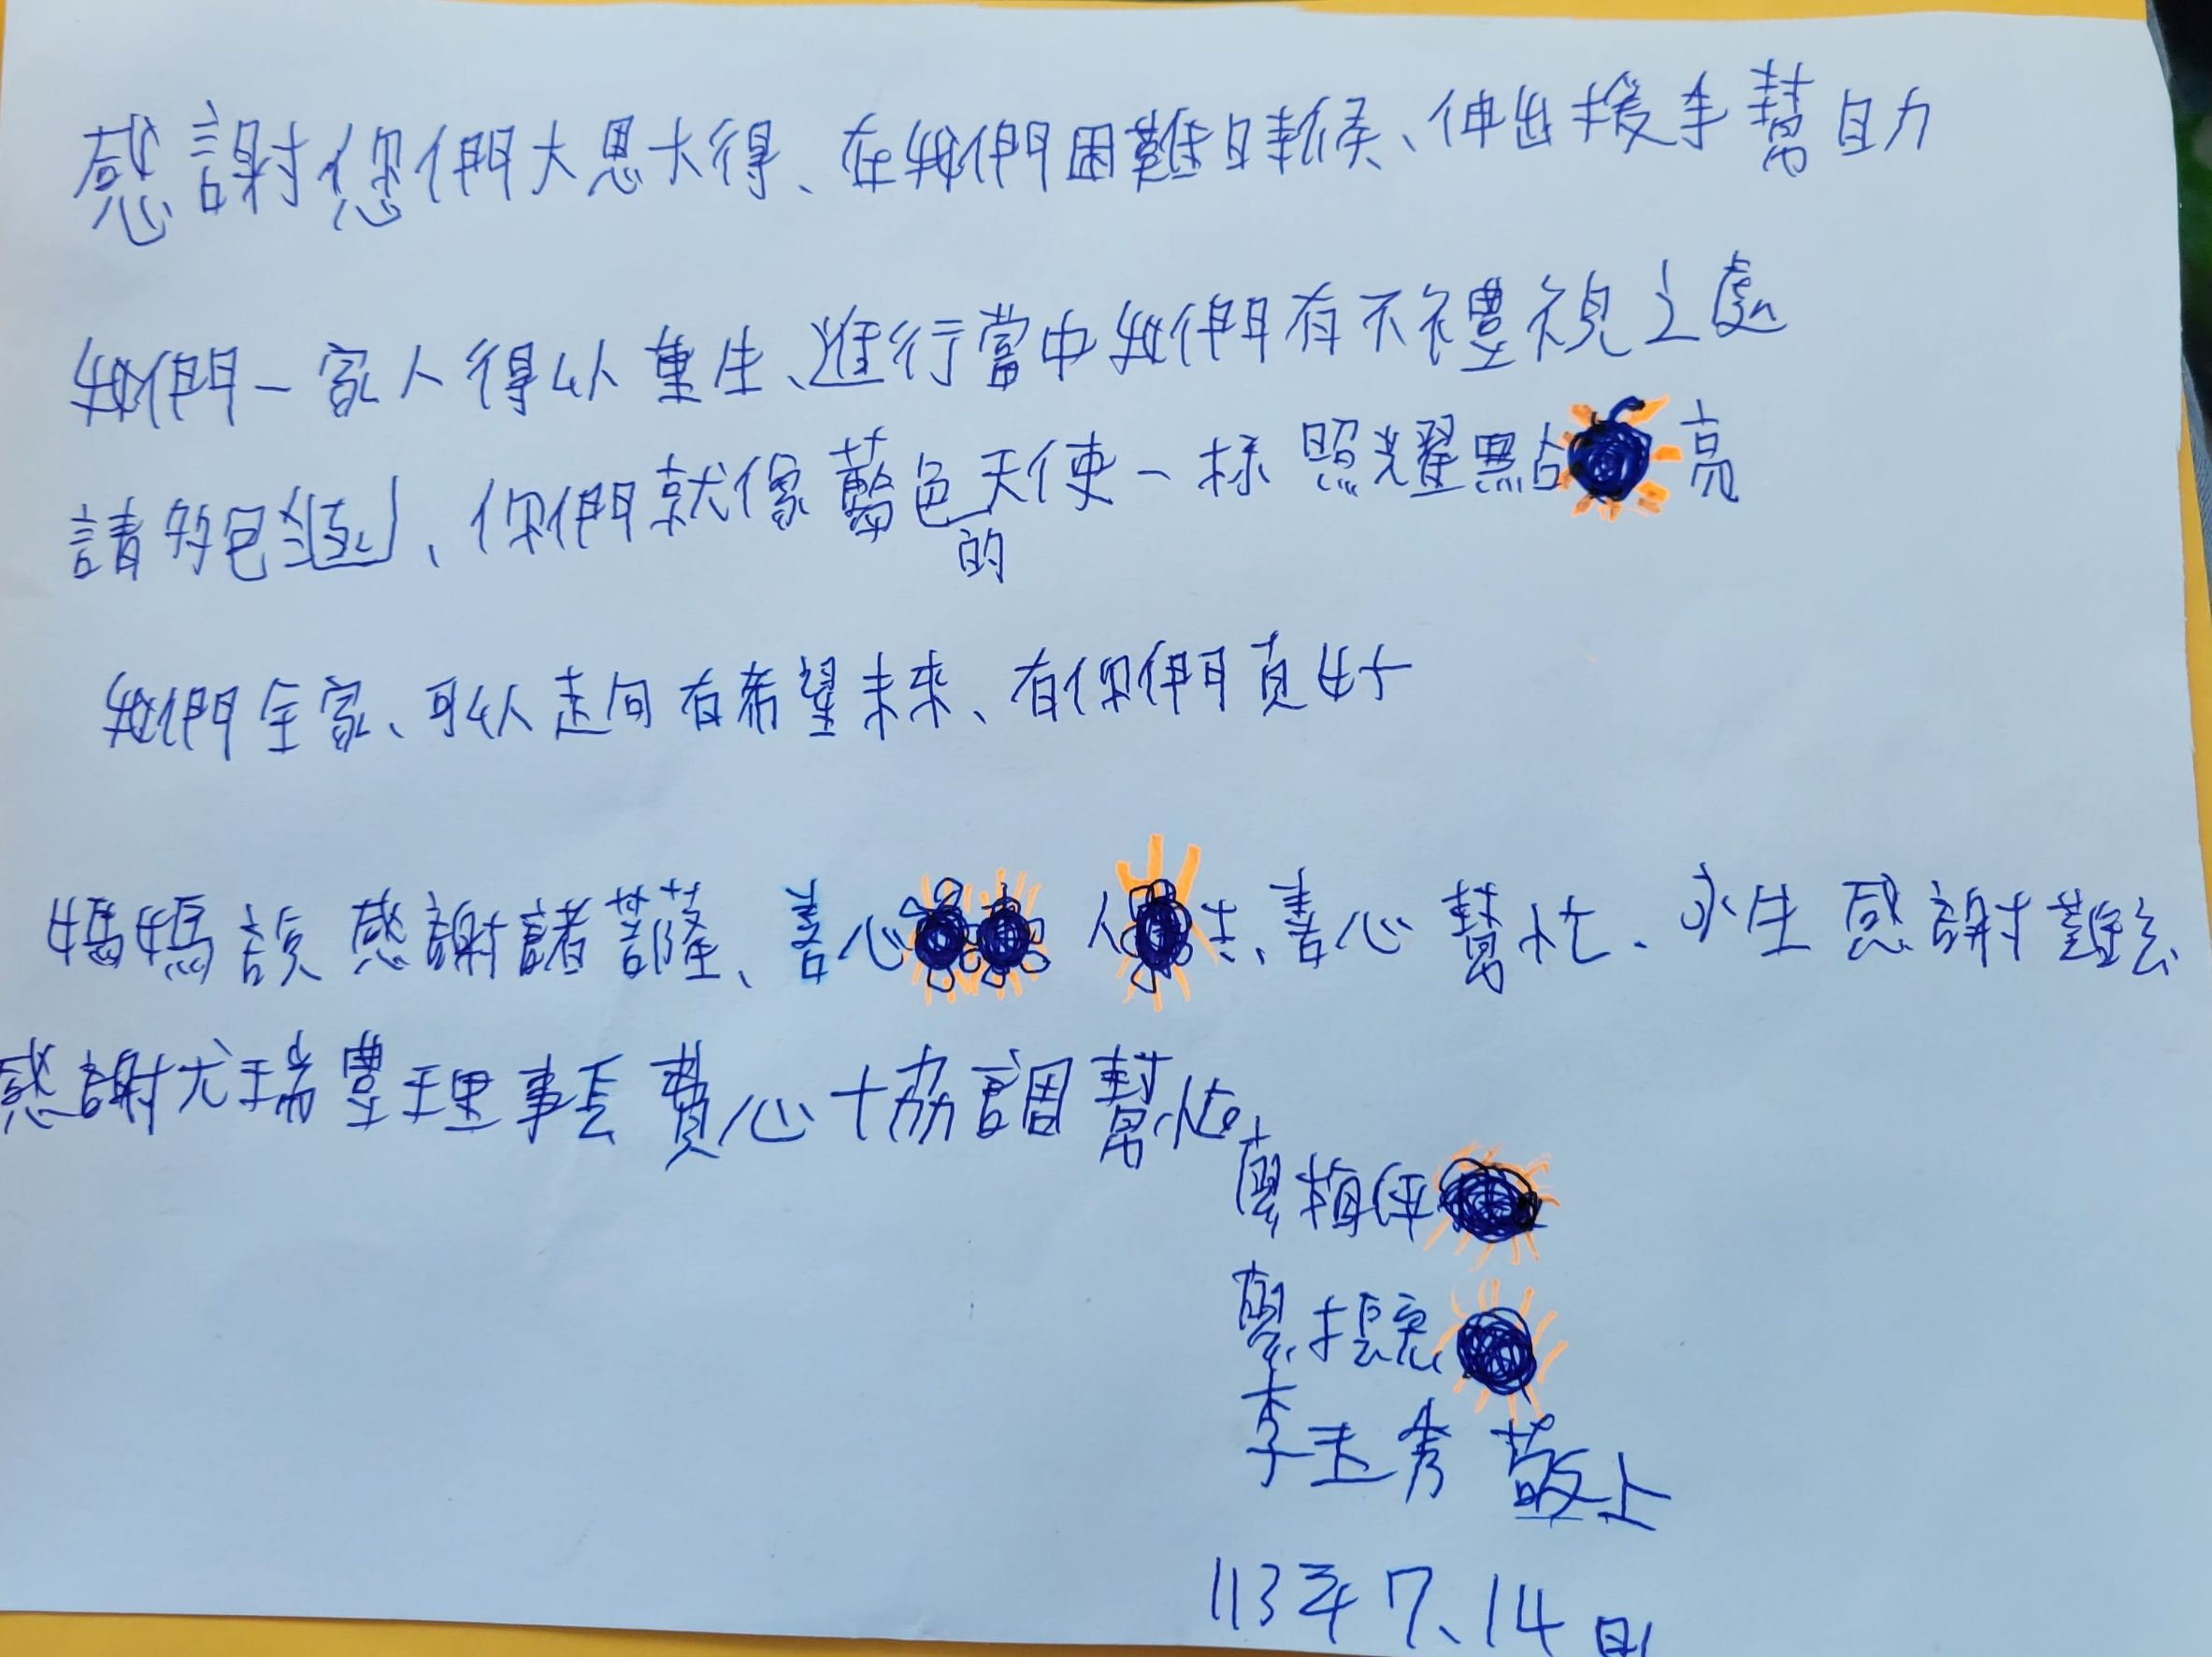 感謝您們大恩大得、在我們困難時候、伸出援手幫助
我們一家人得以重生、進行當中我們有不禮視之處
請多包涵、你們就像藍色的天使一樣照耀點亮
我們全家、可以走向有希望未來、有你們真好
媽媽說感謝諸菩薩、善心 善心幫忙、永生感謝難忘
感謝尤瑞豐理事長費心協調幫忙
李玉秀 敬上
113年7、14日